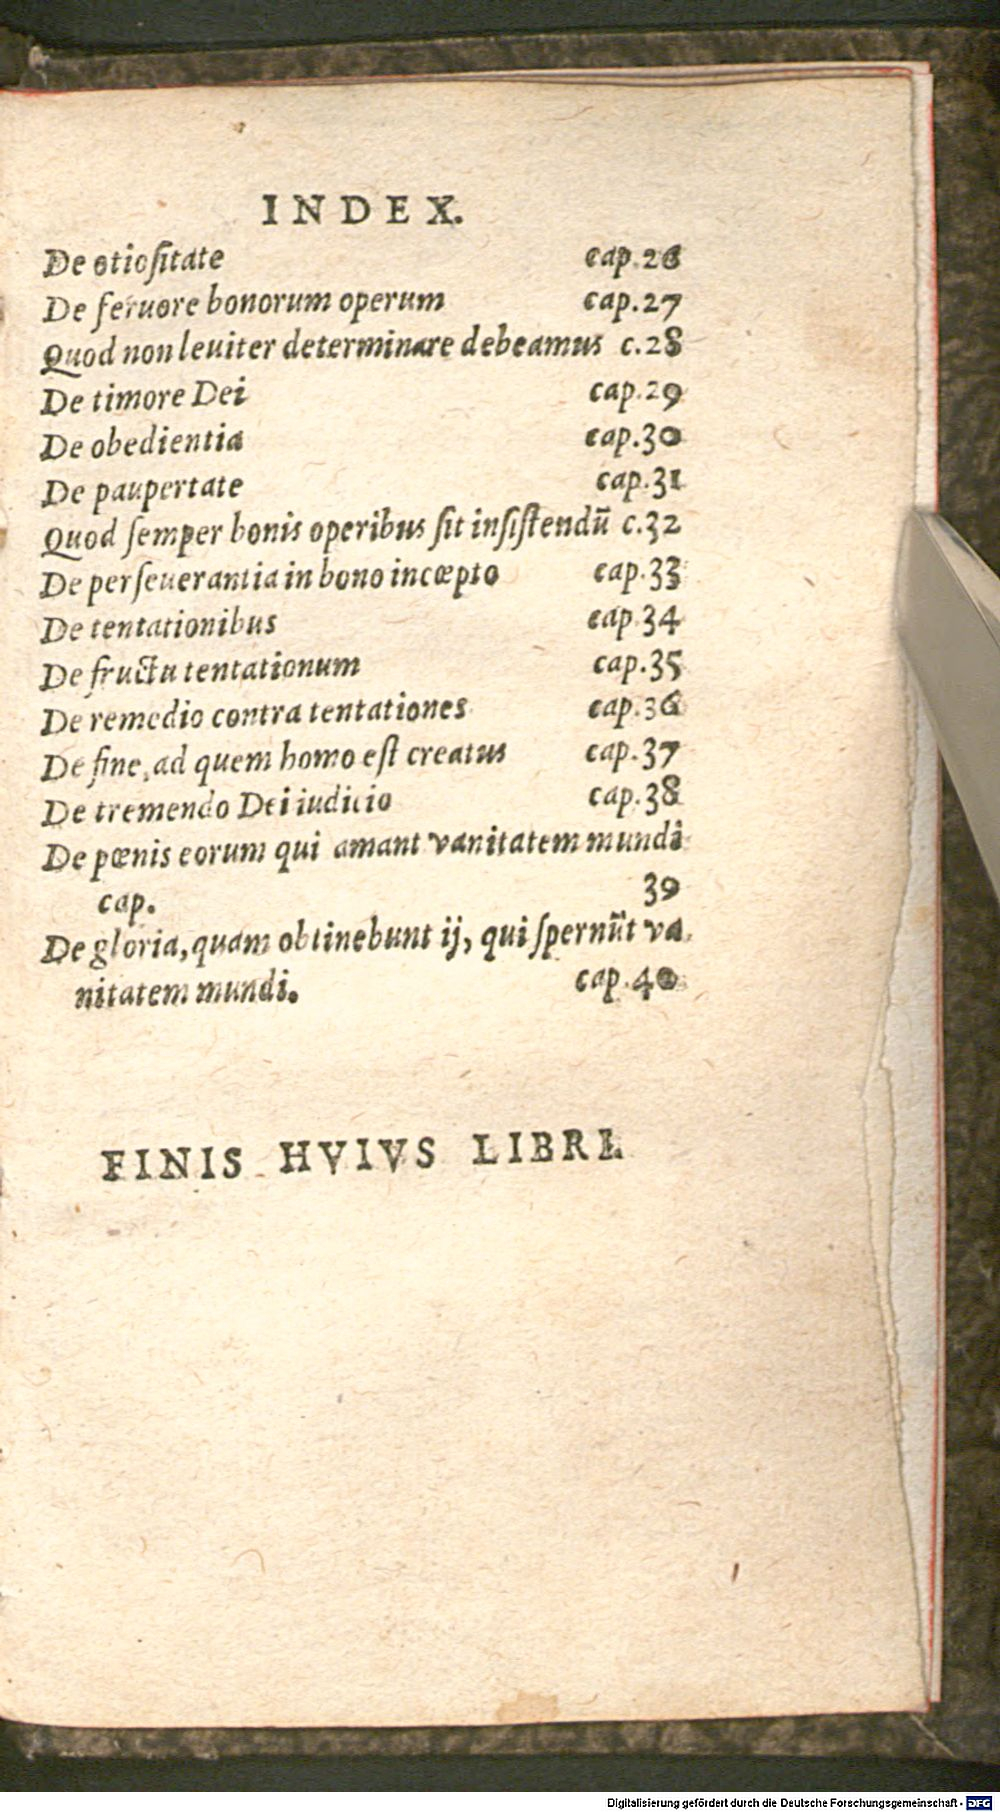 INDEX.
De otiositate cap.26
De feruore bonorum operum cap.27
Quod non leuiter determinare debeamus c.28
De timore Dei cap.29
De obedientia cap.30
De paupertate cap.31
Quod semper bonis operibus sit insistendū c.32
De perseuerantia in bono incœpto cap.33
De tentationibus cap.34
De fructu tentationum cap.35
De remedio contra tentationes cap.36
De fine, ad quem homo est creatus cap.37
De tremendo Dei iudicio cap.38
De pœnis eorum qui amant vanitatem mundi
cap. 39
De gloria, quam obtinebunt ij, qui spernūt va
nitatem mundi. cap.40
FINIS HVIVS LIBRI.
Digitalisierung gefördert durch die Deutsche Forschungsgemeinschaft - DFG